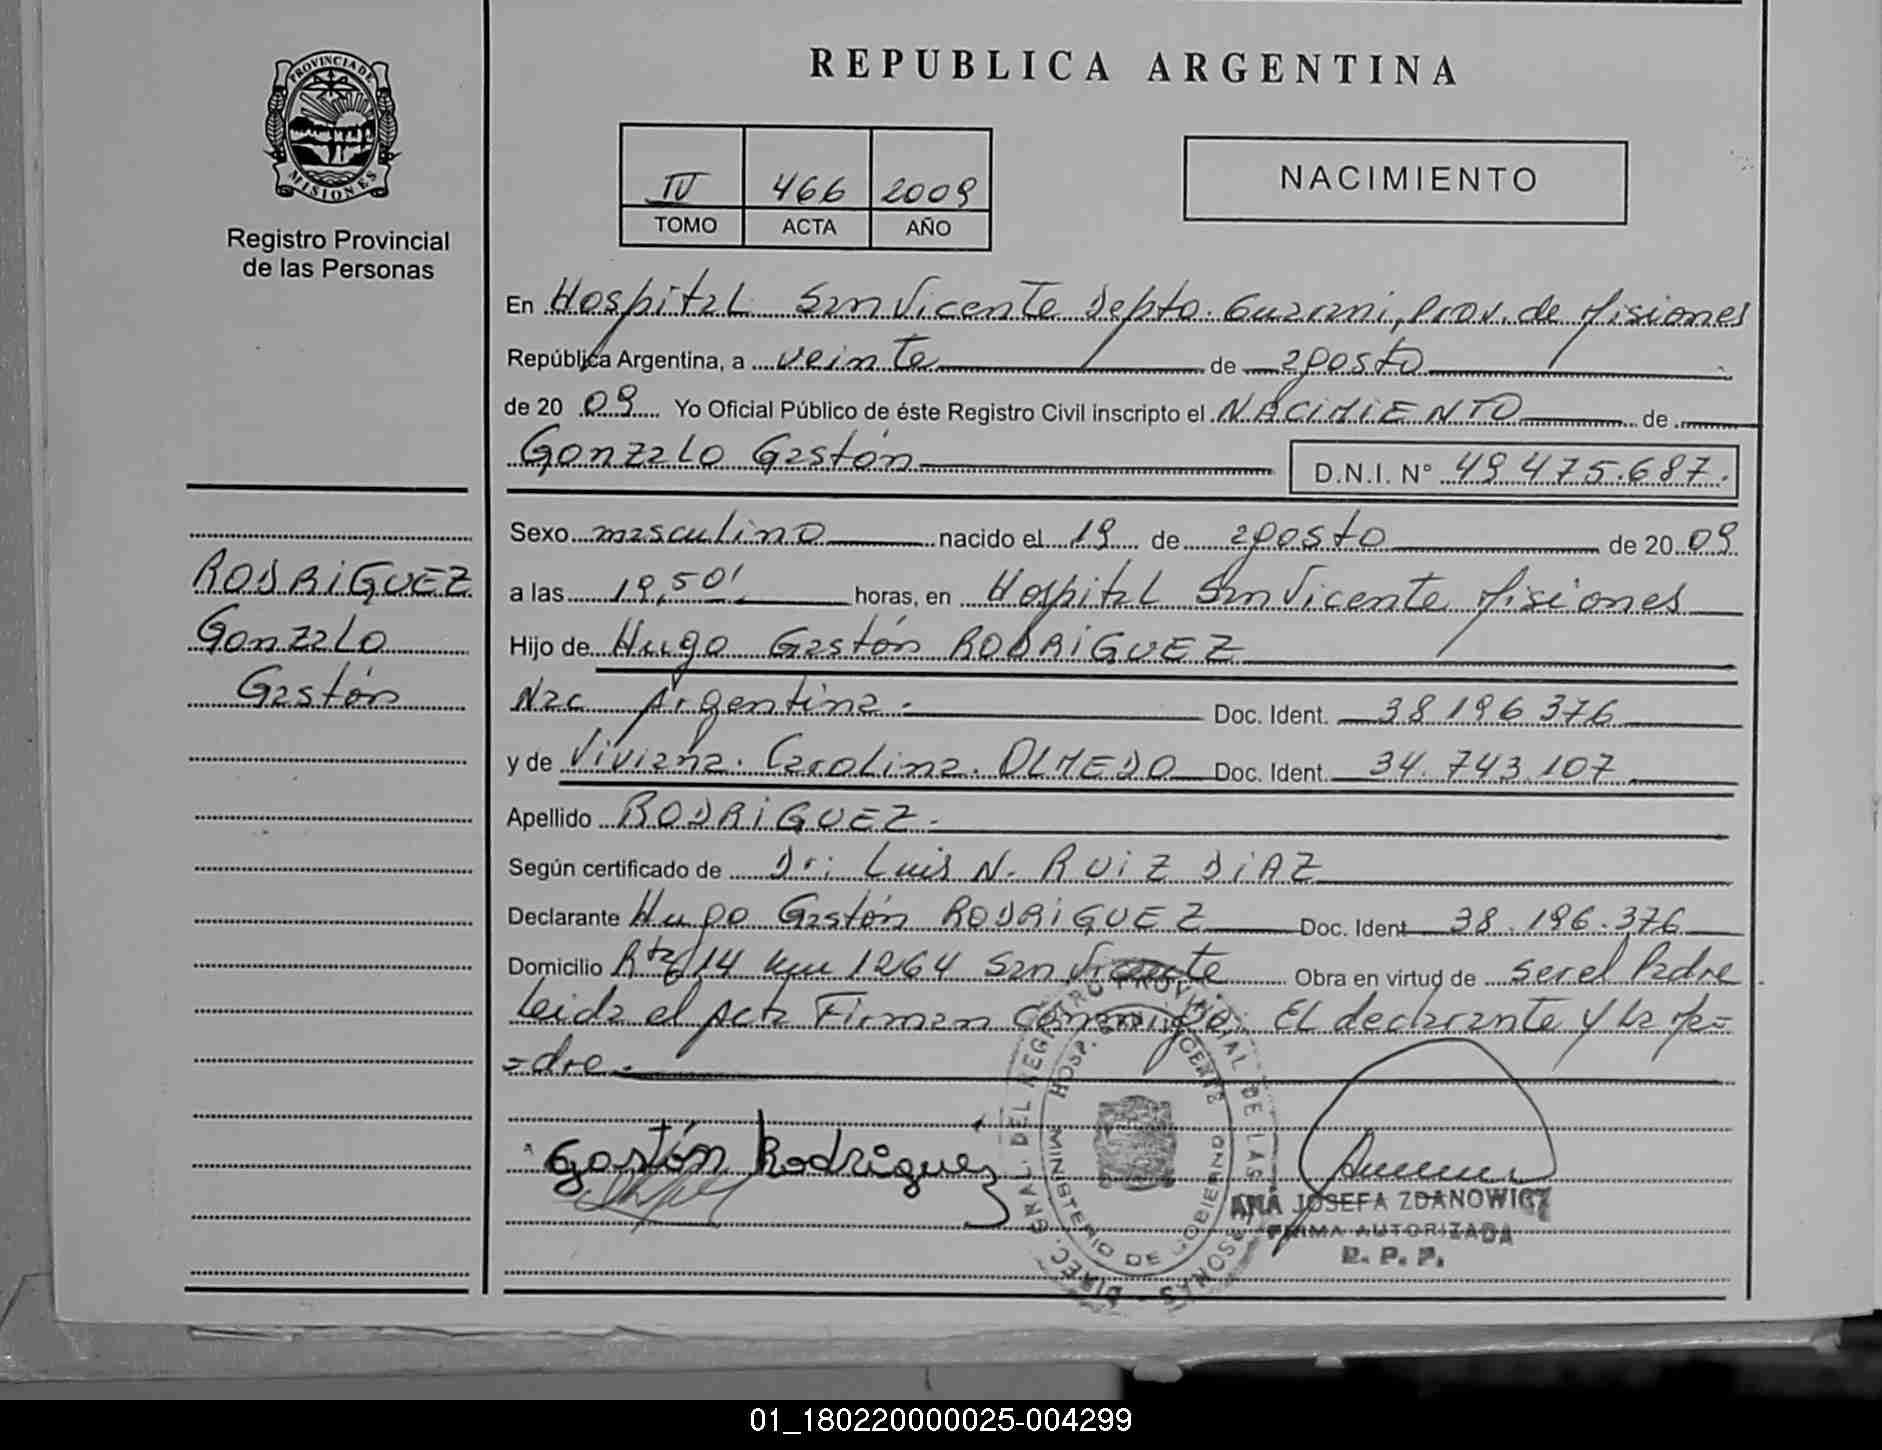 REPUBLICA ARGENTINA
PROVINCIA DE
MISIONES
Registro Provincial
de las Personas
IV 466 2009
TOMO ACTA AÑO
NACIMIENTO
En Hospital San Vicente Depto. Guarani, Prov. de Misiones
República Argentina, a veinte de agosto
de 20 09 Yo Oficial Público de éste Registro Civil inscripto el NACIMIENTO de
Gonzalo Gastón D.N.I. N° 49 475.687.
Sexo masculino nacido el 19 de agosto de 20 09
a las 19,50' horas, en Hospital San Vicente Misiones
Hijo de Hugo Gastón RODRIGUEZ
Nac Argentina. Doc. Ident. 38 196 376
y de Viviana. Carolina. OLMEDO Doc. Ident. 34.743.107
Apellido RODRIGUEZ.
Según certificado de Dr: Luis N. RUIZ DIAZ
Declarante Hugo Gastón RODRIGUEZ Doc. Ident 38.196.376
Domicilio Rta 14 km 1264 San Vicente Obra en virtud de ser el Padre
Leida el Acta Firman Conmigo, El declarante y la Ma=
=dre.
RODRIGUEZ
Gonzalo
Gastón
Gastón Rodriguez
DIREC. GRAL. DEL REGISTRO PROVINCIAL DE LAS PERSONAS
HOSP. SAN VICENTE
MINISTERIO DE GOBIERNO
ANA JOSEFA ZDANOWICZ
FIRMA AUTORIZADA
R. P. P.
01_180220000025-004299